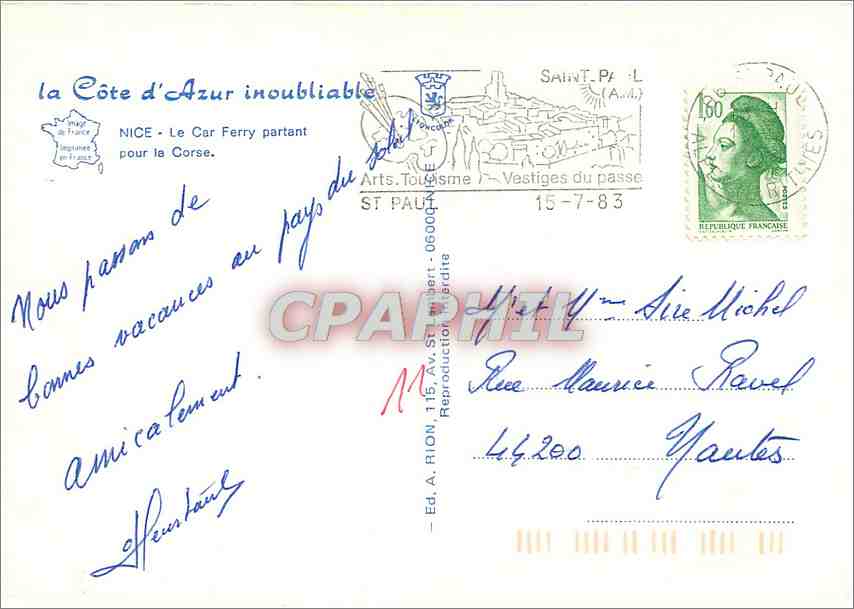 la Côte d'Azur inoubliable
Image
de France
Imprimée
en France
NICE - Le Car Ferry partant
pour la Corse.
Nous passons de
bonnes vacances au pays du soleil
amicalement.
SAINT-PAUL
(A.M.)
Arts. Tourisme Vestiges du passe
ST PAUL 15-7-83
1,60
POSTES
REPUBLIQUE FRANÇAISE
— Ed. A. RION, 115, Av. St Lambert - 06000 NICE
Reproduction Interdite
CPAPHIL
11
Mr et Mme Sire Michel
Rue Maurice Ravel
44200 Nantes